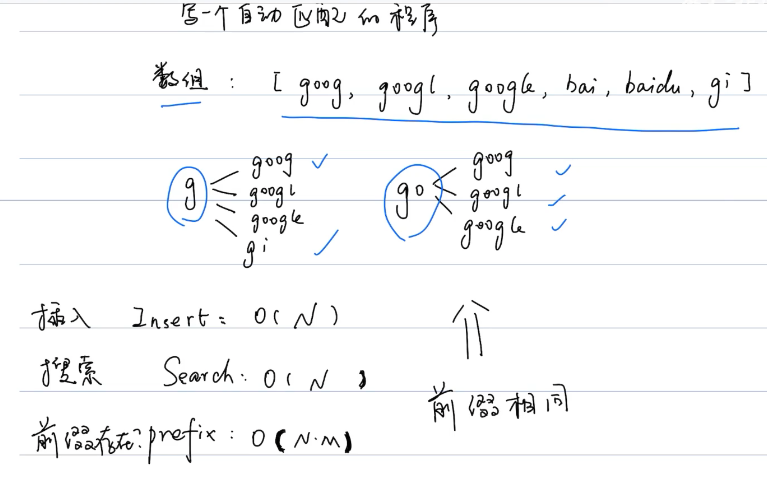 写一个自动匹配的程序
数组 : [ goog, googl, google, bai, baidu, gi ]
g goog
googl
google
gi
go goog
googl
google
插入 Insert: O( N )
搜索 Search: O( N )
前缀存在? prefix: O( N·M )
前缀相同